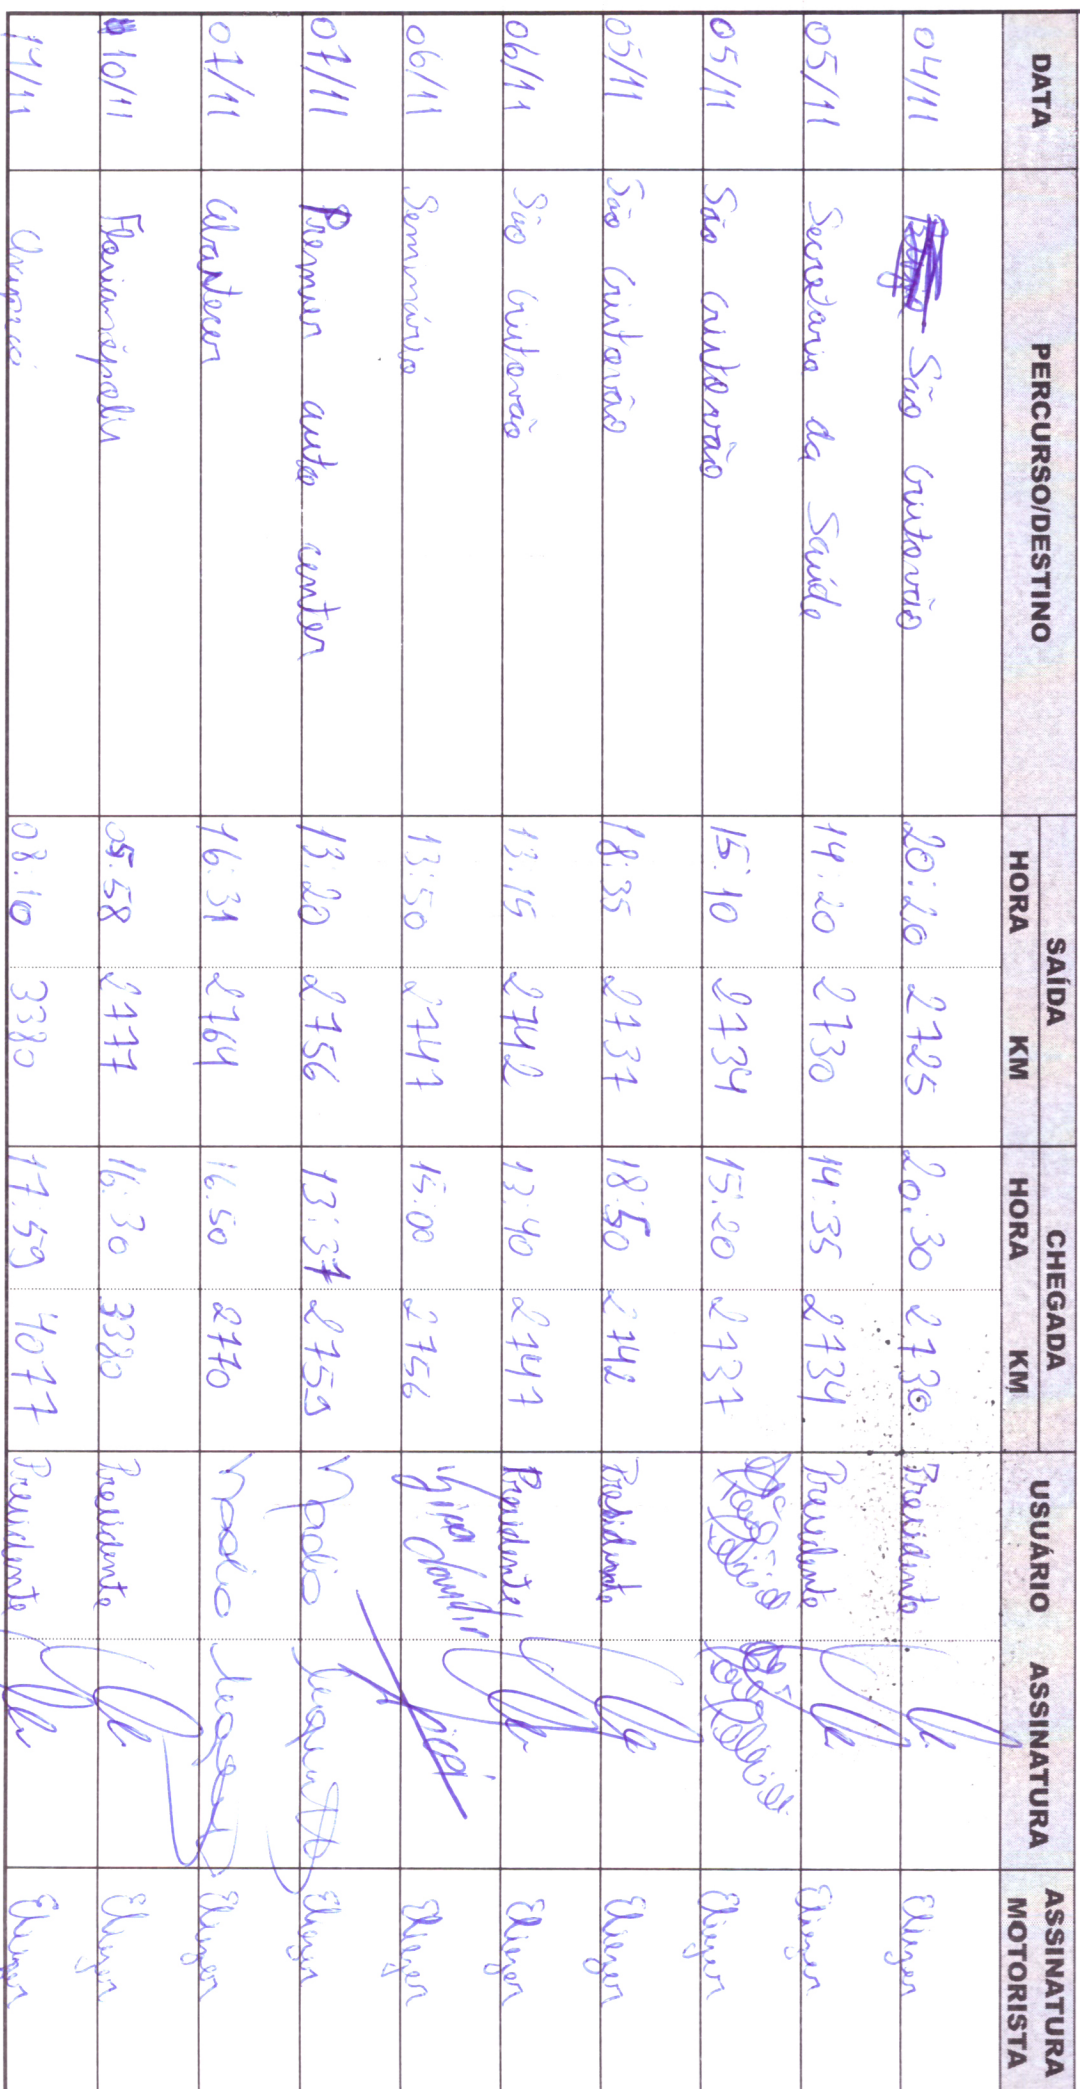 DATA PERCURSO/DESTINO SAÍDA CHEGADA USUÁRIO ASSINATURA ASSINATURA MOTORISTA
HORA KM HORA KM
04/11 São Cristovão 20:20 2725 20:30 2730 Presidente Eliezer
05/11 Secretaria da Saúde 14:20 2730 14:35 2734 Presidente Eliezer
05/11 São Cristovão 15:10 2734 15:20 2737 Eliezer
05/11 São Cristovão 18:35 2737 18:50 2742 Presidente Eliezer
06/11 São Cristovão 13:15 2742 13:40 2747 Presidente Eliezer
06/11 Seminário 13:50 2747 15:00 2756 Eliezer
07/11 Premier auto center 13:20 2756 13:37 2759 Eliezer
07/11 Abastecer 16:31 2764 16:50 2770 Eliezer
10/11 Florianópolis 05:58 2777 16:30 3380 Presidente Eliezer
11/11 08:10 3380 17:59 4077 Presidente Eliezer